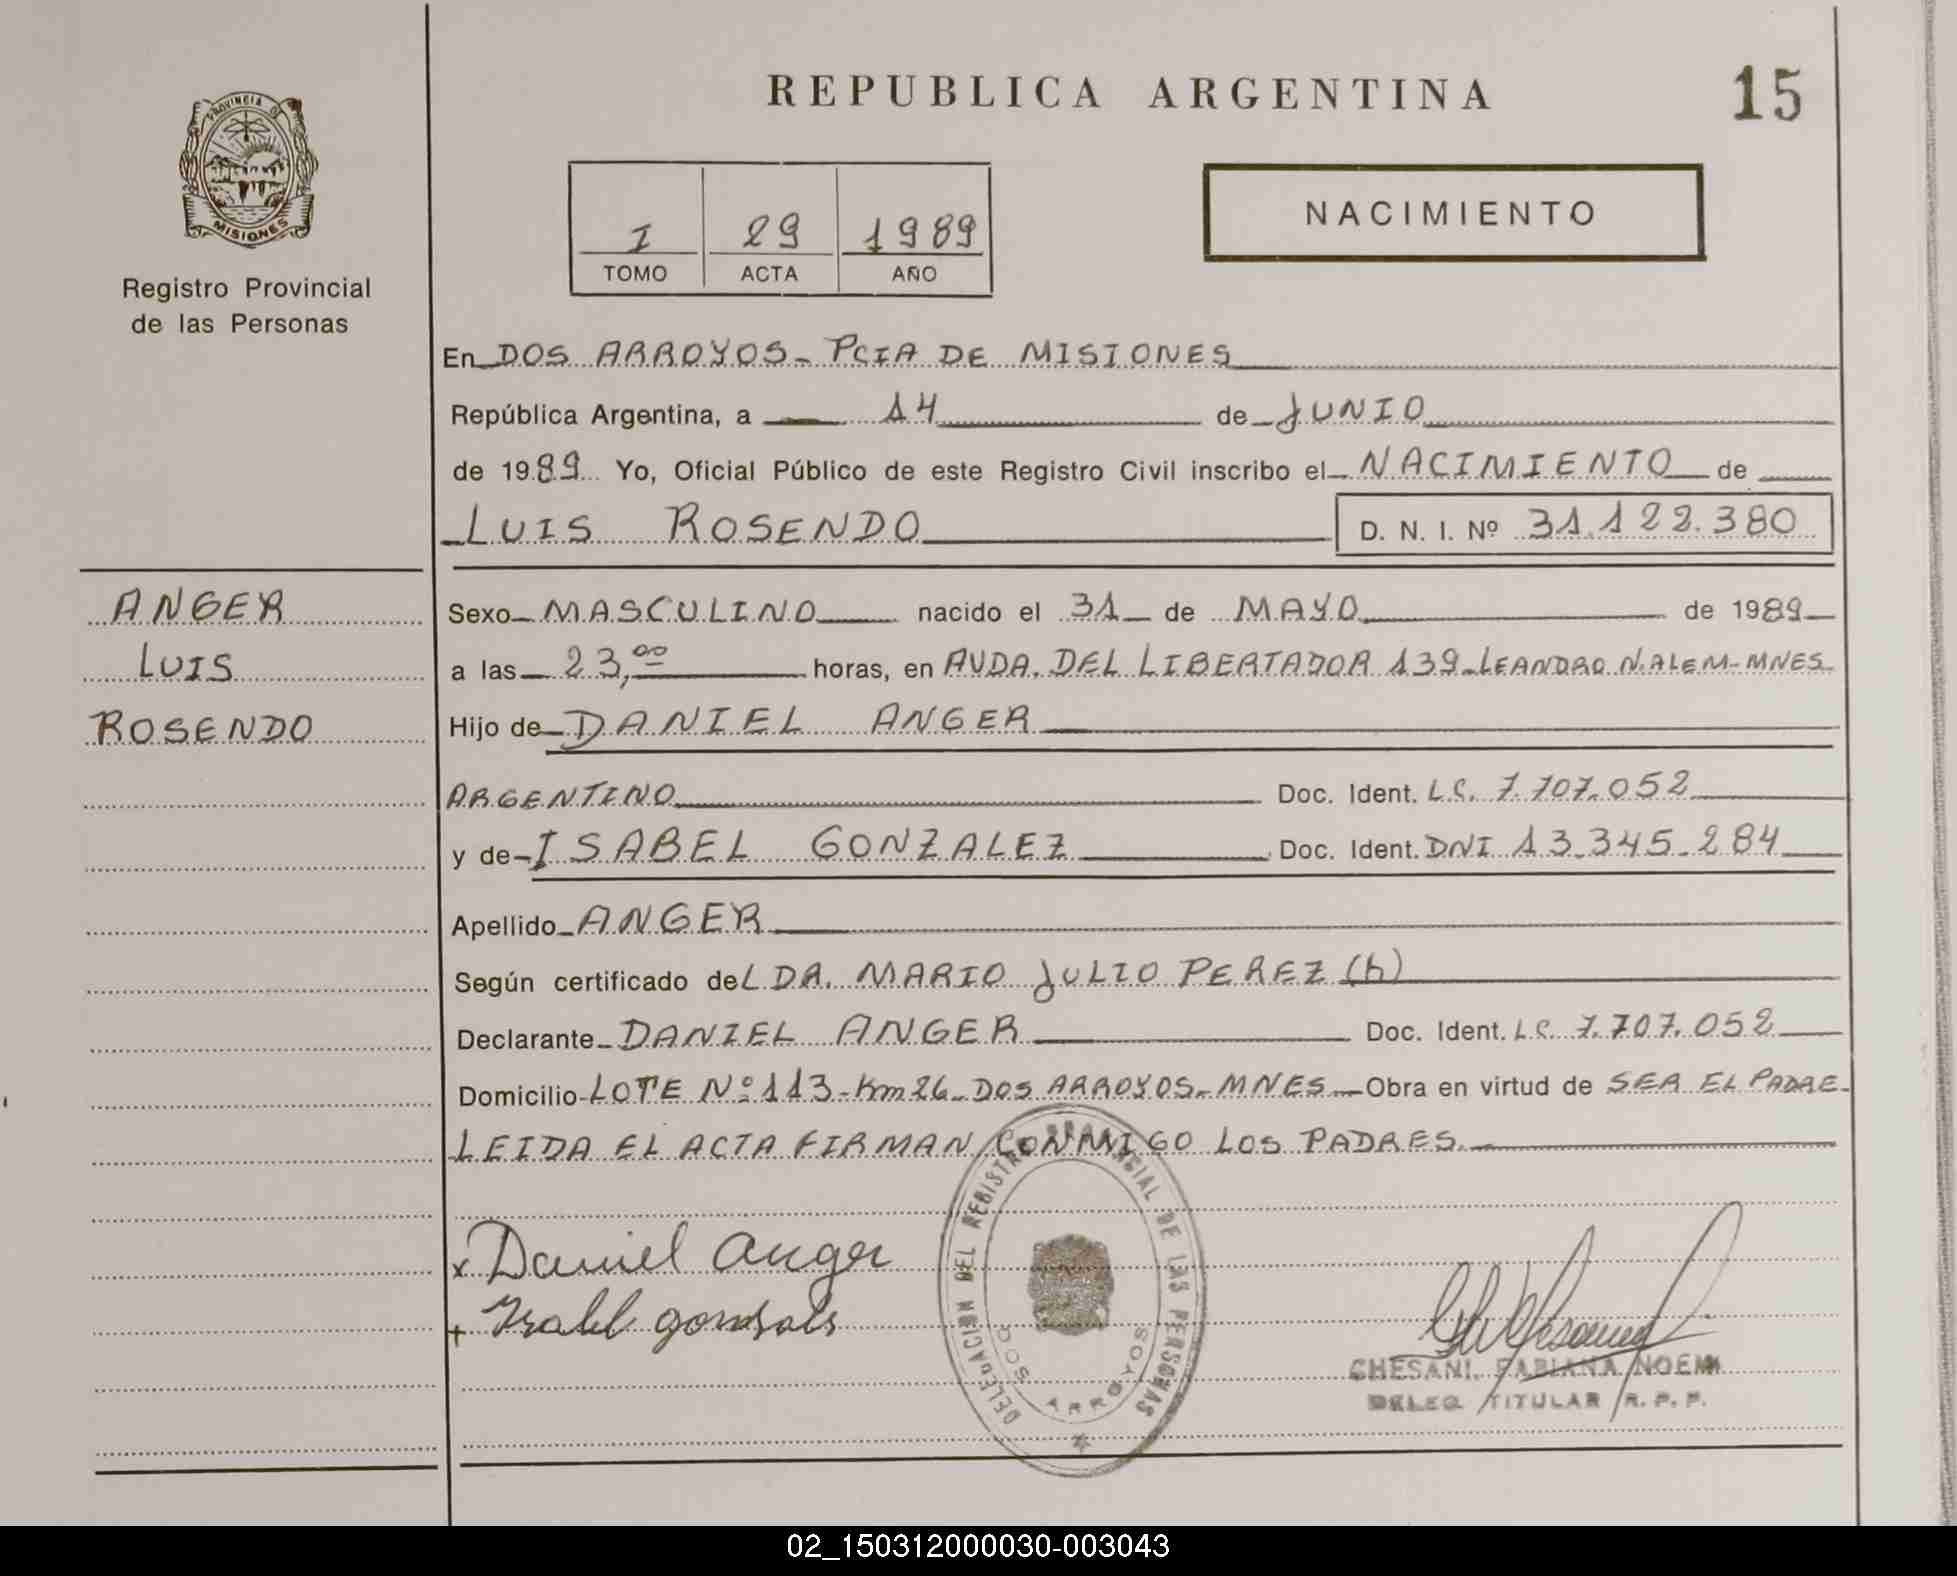 REPUBLICA ARGENTINA
15
PROVINCIA DE
MISIONES
Registro Provincial
de las Personas
I 29 1989
TOMO ACTA AÑO
NACIMIENTO
En DOS ARROYOS - PCIA DE MISIONES
República Argentina, a 14 de JUNIO
de 1989 Yo, Oficial Público de este Registro Civil inscribo el NACIMIENTO de
LUIS ROSENDO D. N. I. Nº 31.122.380
ANGER
LUIS
ROSENDO
Sexo MASCULINO nacido el 31 de MAYO de 1989
a las 23,00 horas, en AVDA. DEL LIBERTADOR 139-LEANDRO N. ALEM-MNES
Hijo de DANIEL ANGER
ARGENTINO Doc. Ident. L.C. 7.707.052
y de ISABEL GONZALEZ Doc. Ident. DNI 13.345.284
Apellido ANGER
Según certificado deL DR. MARIO JULIO PEREZ (h)
Declarante DANIEL ANGER Doc. Ident. L.C. 7.707.052
Domicilio LOTE Nº 113-Km 26-DOS ARROYOS-MNES Obra en virtud de SER EL PADRE-
LEIDA EL ACTA FIRMAN CONMIGO LOS PADRES.
x Daniel Anger
+
DELEGACION DEL REGISTRO PROVINCIAL DE LAS PERSONAS
DOS ARROYOS
GHESANI, FABIANA NOEMI
DELEG. TITULAR R. P. P.
02_150312000030-003043